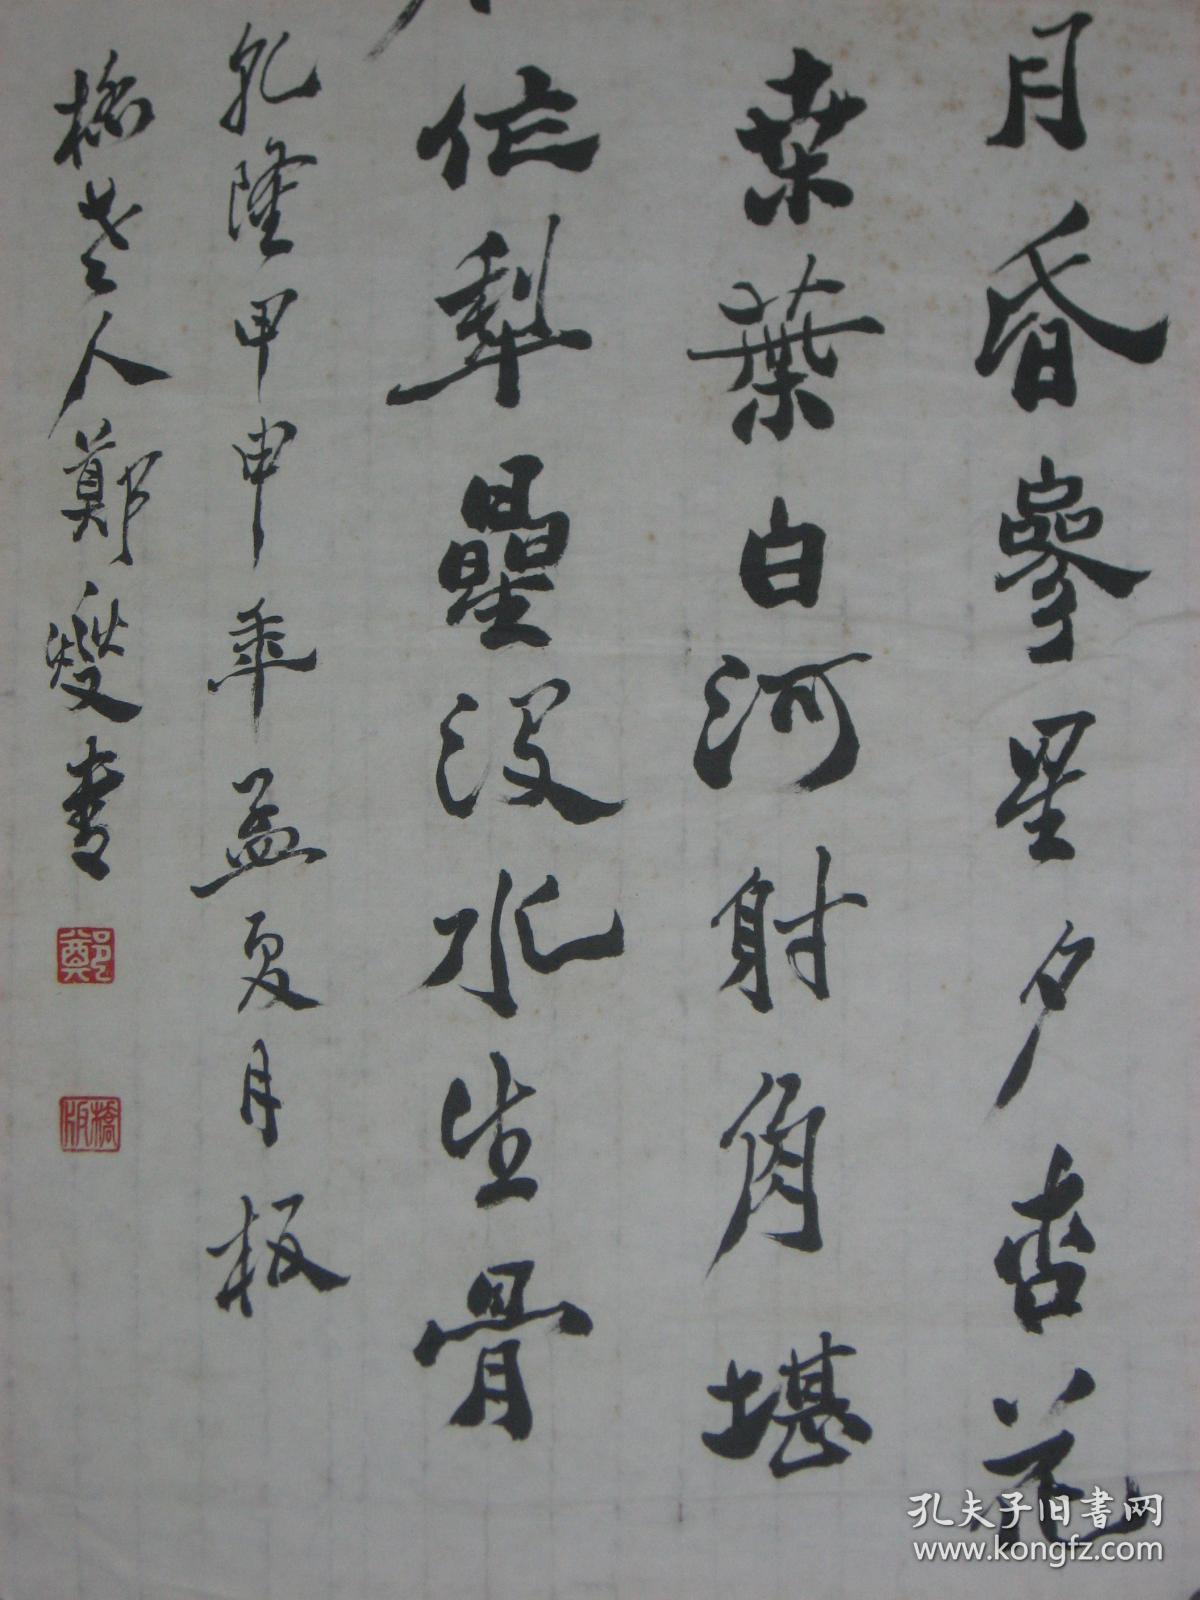 月昏參星夕杏花
桒葉白河射角堪
作犁星没水生骨
乹隆甲申年孟夏月板
橋老人鄭燮書
鄭
板橋
孔夫子旧书网
www.kongfz.com